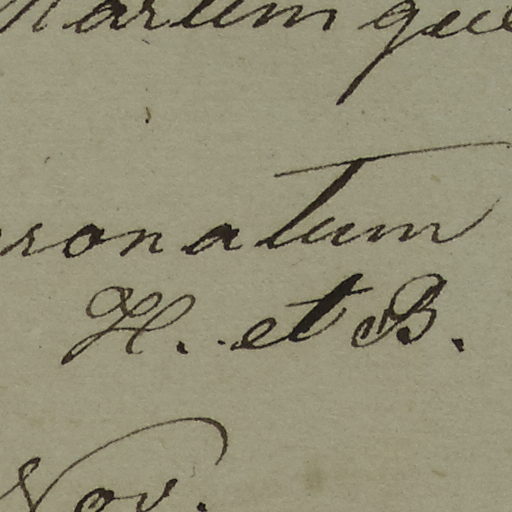 Marumque
oronatum
H. et B.
Nov.